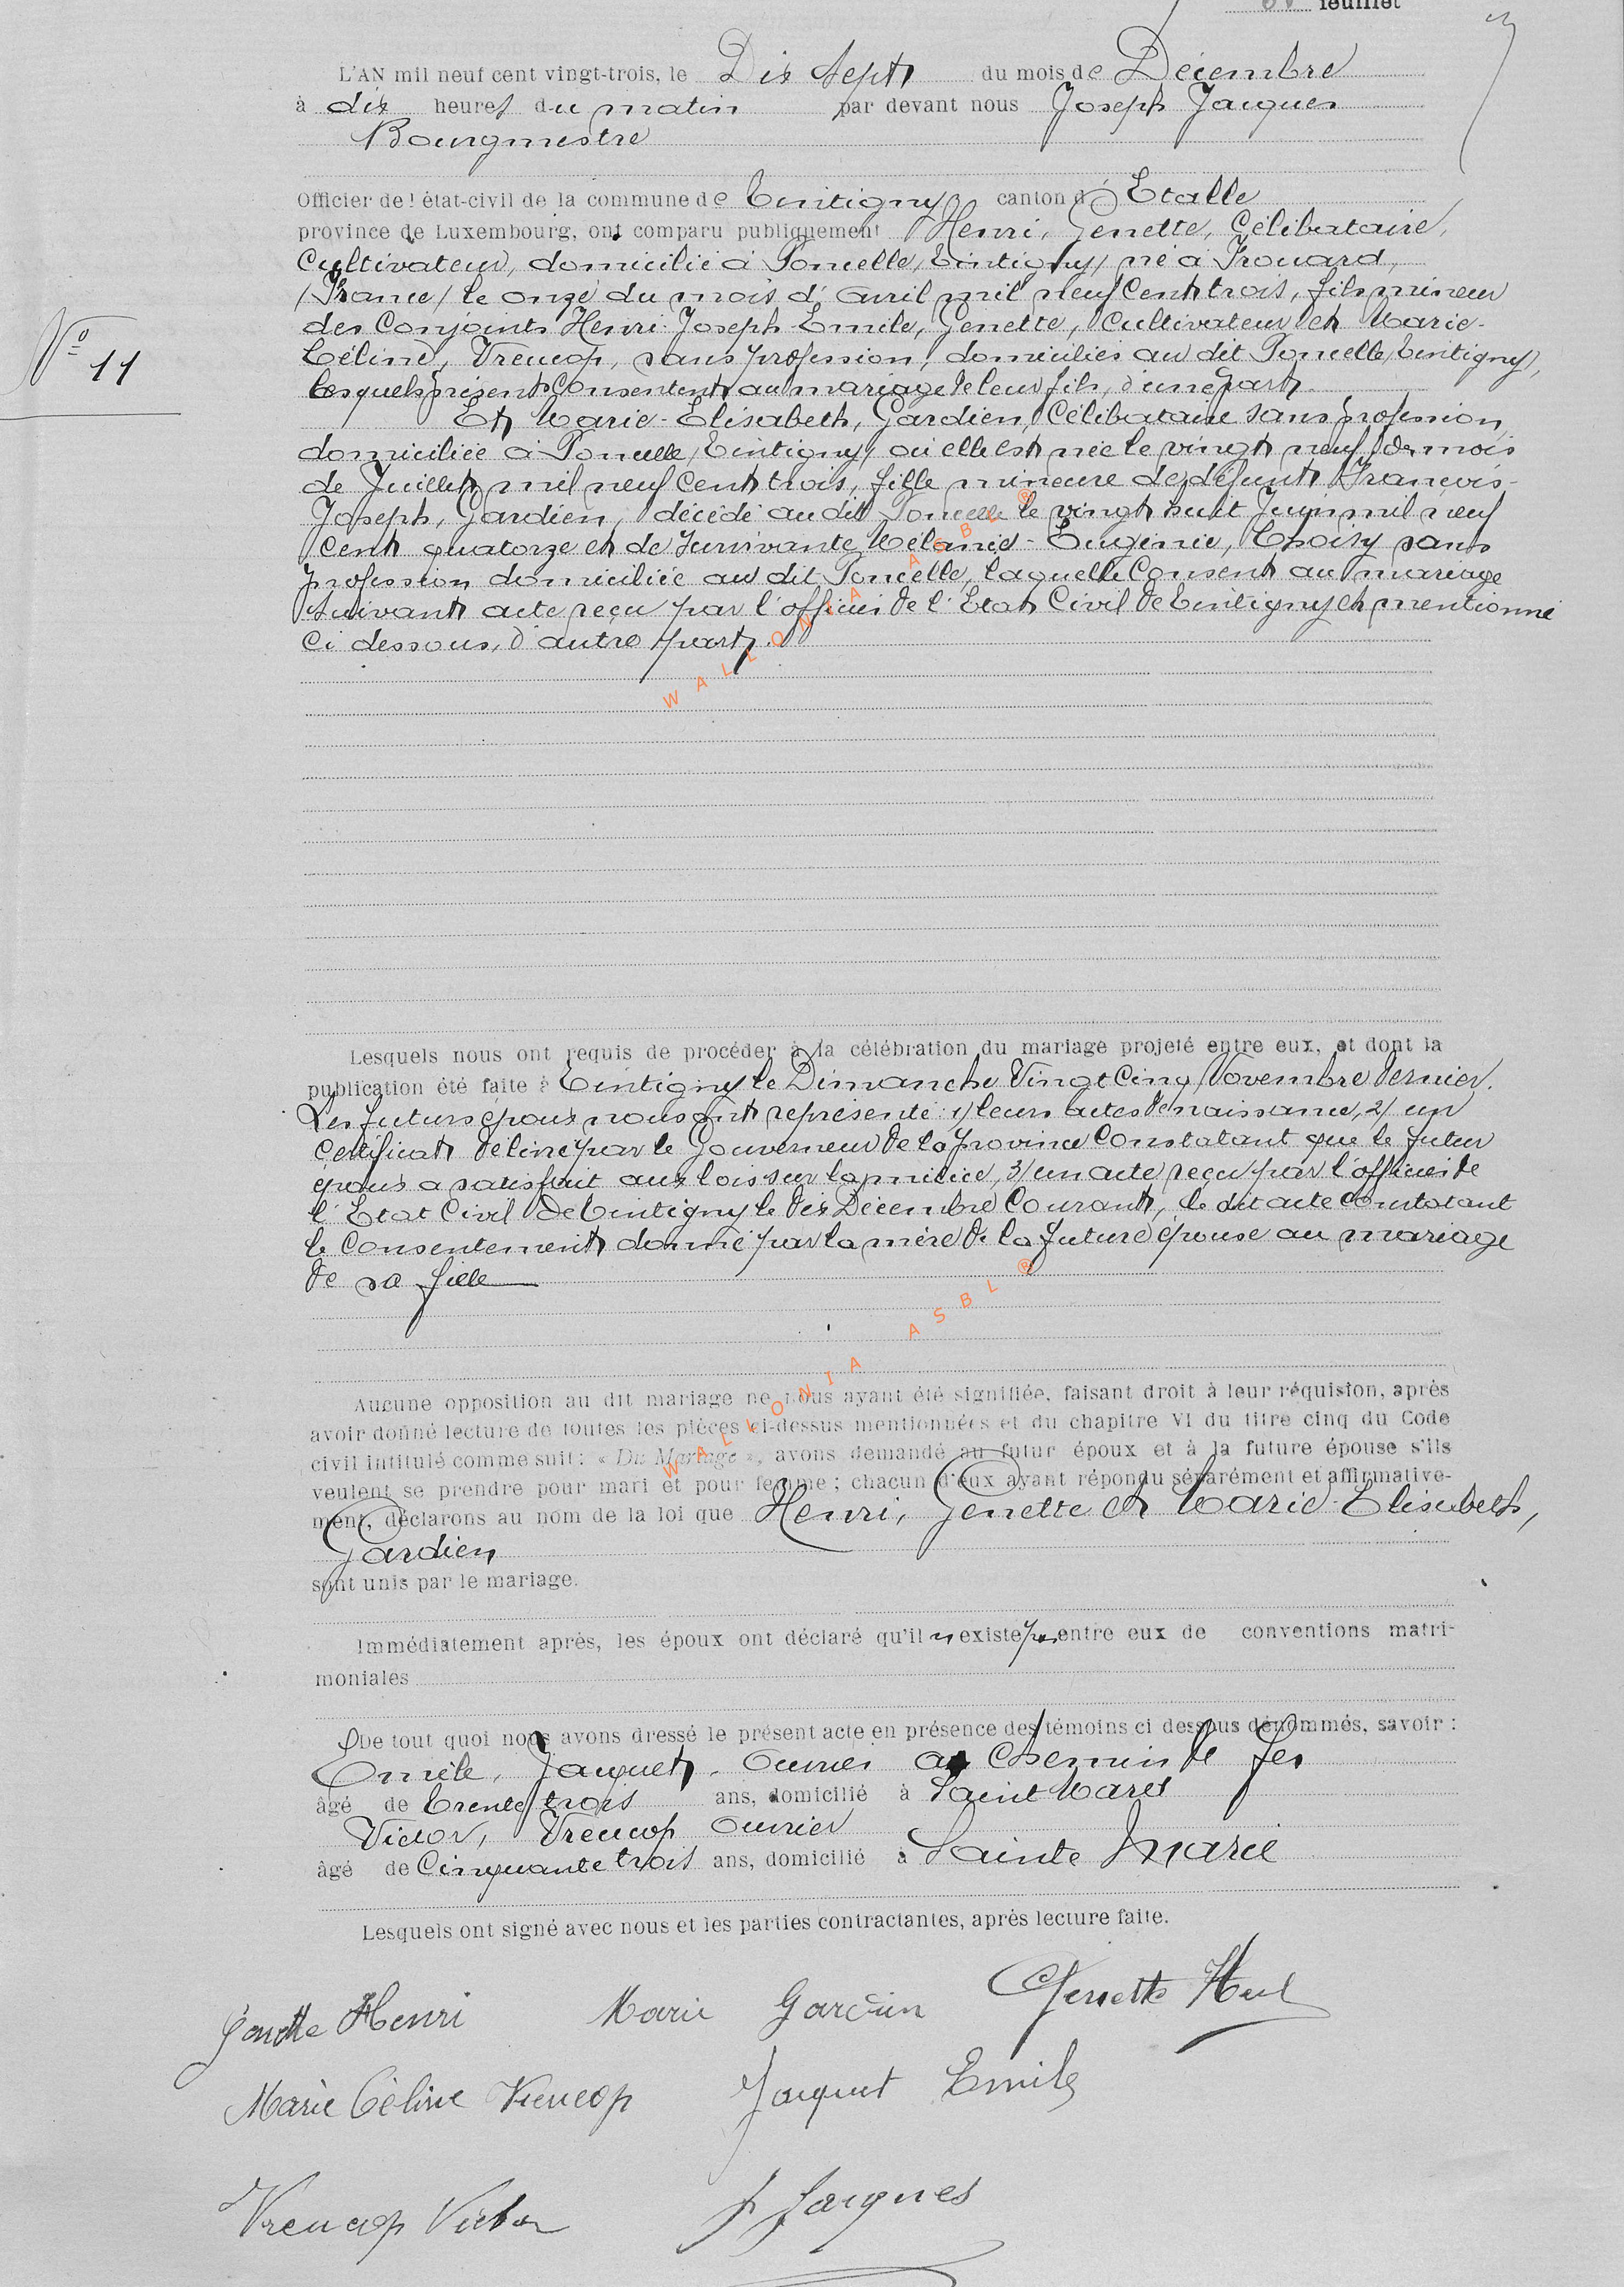 feuillet
L'AN mil neuf cent vingt-trois, le Dix Sept du mois de Décembre
à dix heures du matin par devant nous Joseph Jacques
Bourgmestre
Officier de l'état-civil de la commune de Tintigny canton d'Etalle
province de Luxembourg, ont comparu publiquement Henri, Genette, Célibataire,
Cultivateur, domicilié à Poncelle, Tintigny, né à Frouard,
/France/ le onze du mois d'avril mil neuf cent trois, fils mineur
des Conjoints Henri-Joseph-Emile, Genette, Cultivateur et Marie-
Céline, Vreucop, sans profession, domiciliés au dit Poncelle, Tintigny,
lesquels présents consentent au mariage de leur fils, d'une part
Et Marie-Elisabeth, Gardien, Célibataire sans profession,
domiciliée à Poncelle, Tintigny, où elle est née le vingt neuf du mois
de Juillet mil neuf cent trois, fille mineure de défunt François-
Joseph, Gardien, décédé au dit Poncelle le vingt huit Juin mil neuf
cent quatorze et de survivante Mélanie-Eugénie, Choisy sans
profession domiciliée au dit Poncelle, laquelle consent au mariage
suivant acte reçu par l'officier de l'Etat Civil de Tintigny et mentionné
ci dessous, d'autre part.
N° 11
WALLONIA ASBL ®
Lesquels nous ont requis de procéder à la célébration du mariage projeté entre eux, et dont la
publication été faite à Tintigny le Dimanche Vingt Cinq Novembre dernier.
Les futurs époux nous ont représenté: 1/ leurs actes de naissance, 2/ un
Certificat délivré par le Gouverneur de la province constatant que le futur
époux a satisfait aux lois sur la milice, 3/ un acte reçu par l'officier de
l'Etat Civil de Tintigny le dix Décembre Courant, le dit acte constatant
le Consentement donné par la mère de la future épouse au mariage
de sa fille
WALLONIA ASBL ®
Aucune opposition au dit mariage ne nous ayant été signifiée, faisant droit à leur réquision, après
avoir donné lecture de toutes les pièces ci-dessus mentionnées et du chapitre VI du titre cinq du Code
civil intitulé comme suit: « Du Mariage », avons demandé au futur époux et à la future épouse s'ils
veulent se prendre pour mari et pour femme; chacun d'eux ayant répondu séparément et affirmative-
ment, déclarons au nom de la loi que Henri, Genette et Marie-Elisabeth,
Gardien
sont unis par le mariage.
Immédiatement après, les époux ont déclaré qu'il n'existe pas entre eux de conventions matri-
moniales
De tout quoi nous avons dressé le présent acte en présence des témoins ci dessous dénommés, savoir :
Emile, Jacquet, ouvrier au Chemin de fer
âgé de trente trois ans, domicilié à Saint Mard
Victor, Vreucop ouvrier
âgé de Cinquante trois ans, domicilié à Sainte Marie
Lesquels ont signé avec nous et les parties contractantes, après lecture faite.
Genette Henri Marie Gardien Genette
Marie Céline Vreucop Jacquet Emile
Vreucop Victor J Jacques